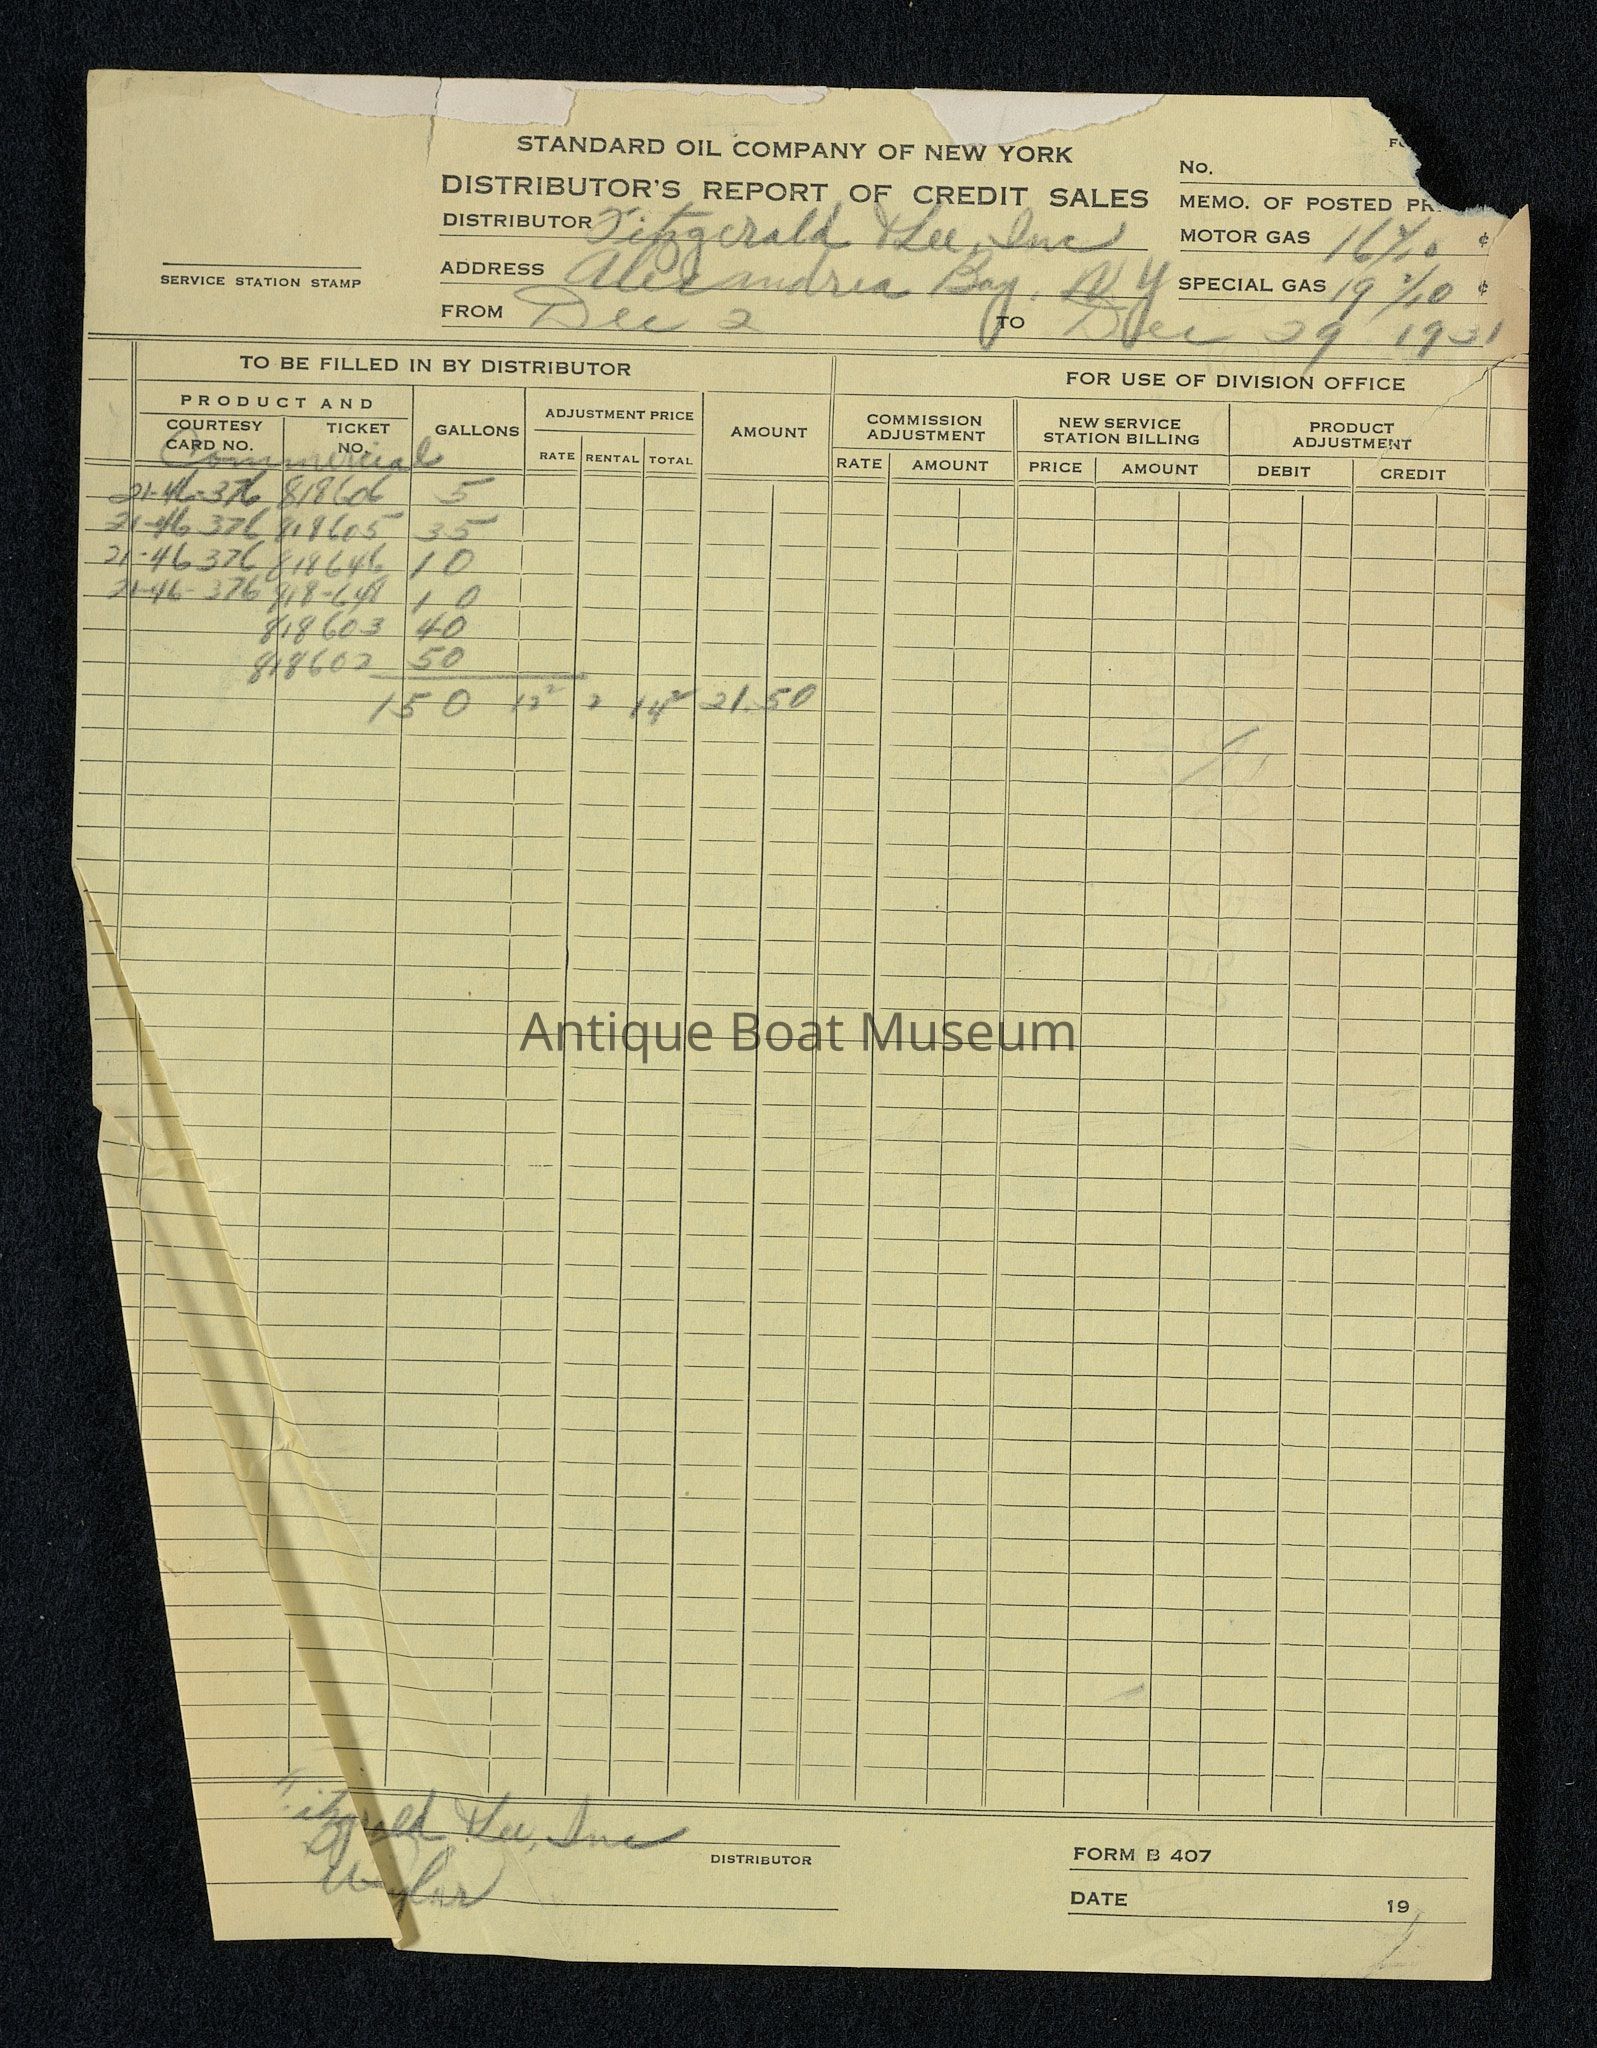 STANDARD OIL COMPANY OF NEW YORK
DISTRIBUTOR'S REPORT OF CREDIT SALES
No.
MEMO. OF POSTED PR
DISTRIBUTOR Fitzgerald & Lee, Inc
MOTOR GAS ¢
ADDRESS Alexandria Bay. N Y
SPECIAL GAS 19 2/10 ¢
SERVICE STATION STAMP
FROM Dec 2 TO Dec 29 1931
TO BE FILLED IN BY DISTRIBUTOR
FOR USE OF DIVISION OFFICE
PRODUCT AND
COURTESY CARD NO. TICKET NO. GALLONS ADJUSTMENT PRICE AMOUNT COMMISSION ADJUSTMENT NEW SERVICE STATION BILLING PRODUCT ADJUSTMENT
RATE RENTAL TOTAL RATE AMOUNT PRICE AMOUNT DEBIT CREDIT
Commercial
21-46-376 818606 5
21-46-376 818605 35
21-46 376 818646 10
21-46-376 818-641 10
818603 40
818602 50
150 12² 2 14² 21.50
Antique Boat Museum
Fitzgerald & Lee, Inc
DISTRIBUTOR
FORM B 407
DATE 19